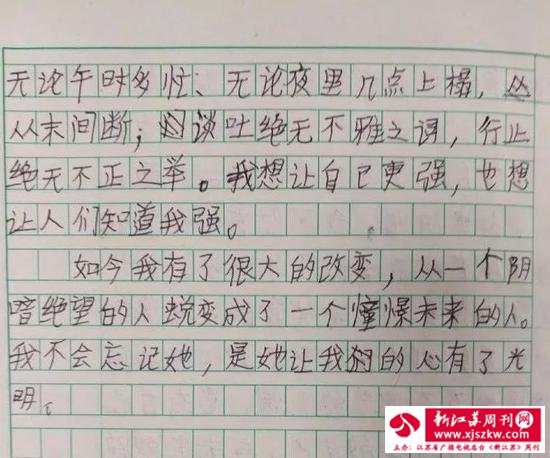 无论午时多忙、无论夜里几点上榻,
从未间断;谈吐绝无不雅之词,行止
绝无不正之举。我想让自己更强,也想
让人们知道我强。
如今我有了很大的改变,从一个阴
暗绝望的人蜕变成了一个憧憬未来的人。
我不会忘记她,是她让我的心有了光
明。
新江苏周刊网
www.xjszkw.com
主办:江苏省广播电视总台《新江苏》周刊